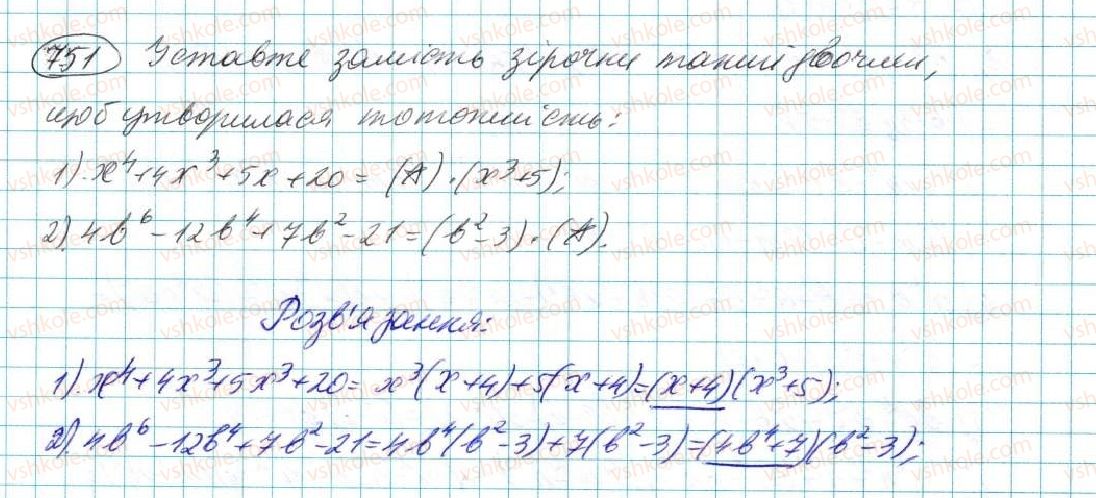 751 Уставте замість зірочки такий двочлен,
щоб утворилася тотожність:
1). x⁴+4x³+5x+20 = (*)·(x³+5);
2). 4b⁶-12b⁴+7b²-21=(b²-3)·(*).
Розв'язання:
1). x⁴+4x³+5x³+20= x³(x+4)+5(x+4)=(x+4)(x³+5);
2). 4b⁶-12b⁴+7b²-21=4b⁴(b²-3)+7(b²-3)=(4b⁴+7)(b²-3);